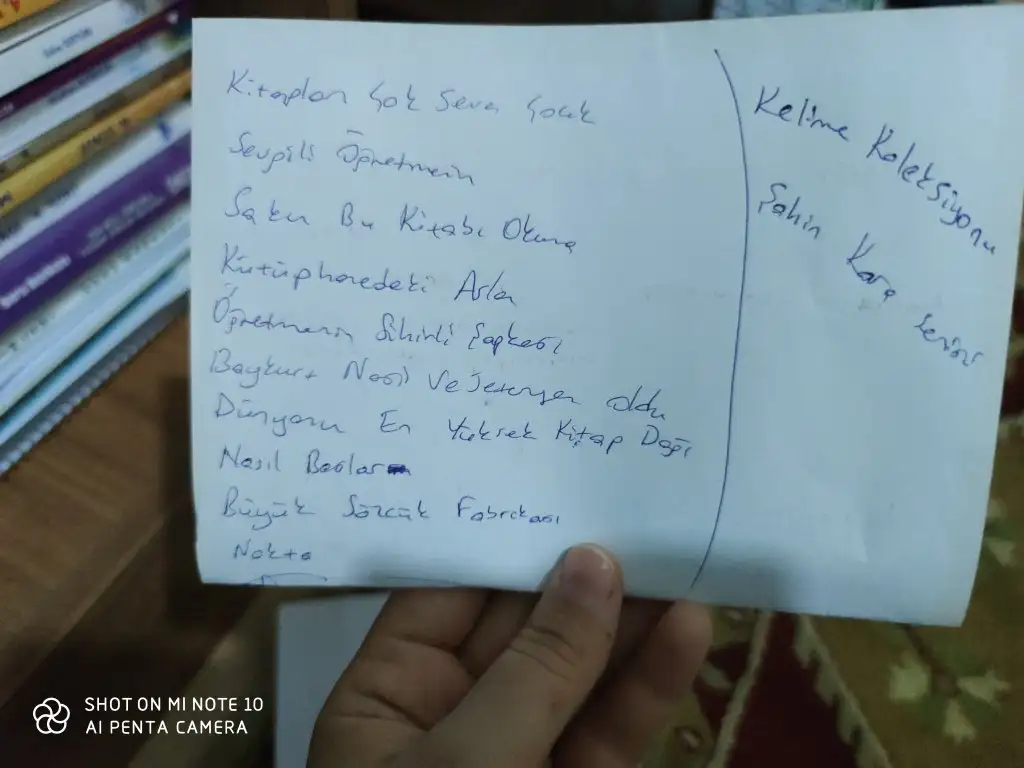 Kitapları Çok Seven Çocuk
Sevgili Öğretmenin
Sakın Bu Kitabı Okuma
Kütüphanedeki Aslan
Öğretmenin Sihirli Şapkası
Baykurt Nasıl Vejeteryan oldu
Dünyanın En Yüksek Kitap Dağı
Nasıl Başlar
Büyük Sözcük Fabrikası
Nokta
Kelime Koleksiyonu
Şahin Karga Serisi
SHOT ON MI NOTE 10
AI PENTA CAMERA